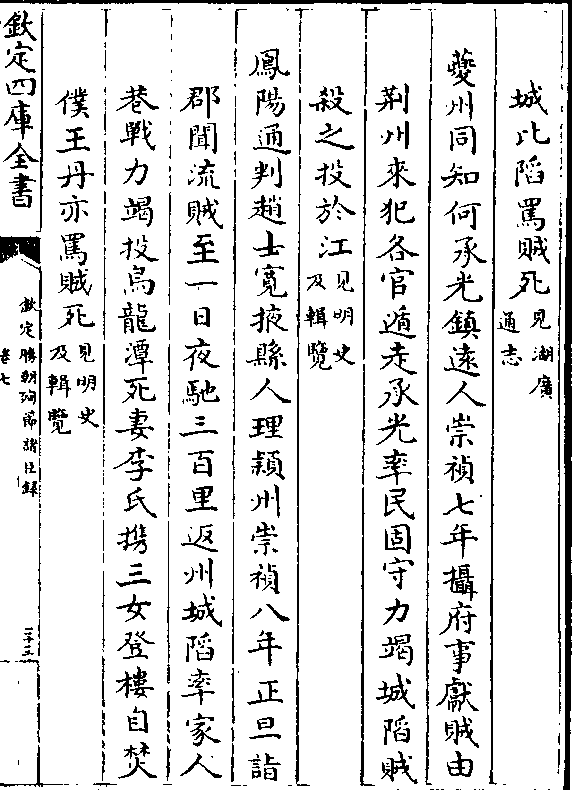 城比䧟罵賊死見湖廣通志
夔州同知何承光鎮逺人崇禎七年攝府事獻賊由
荆州來犯各官遁走承光率民固守力竭城䧟賊
殺之投於江見明史及輯覽
鳳陽通判趙士寛掖縣人理潁州崇禎八年正旦詣
郡聞流賊至一日夜馳三百里返州城䧟率家人
巷戰力竭投烏龍潭死妻李氏携三女登樓自焚
僕王丹亦罵賊死見明史及輯覽
欽定四庫全書
欽定勝朝殉節諸臣録
卷七